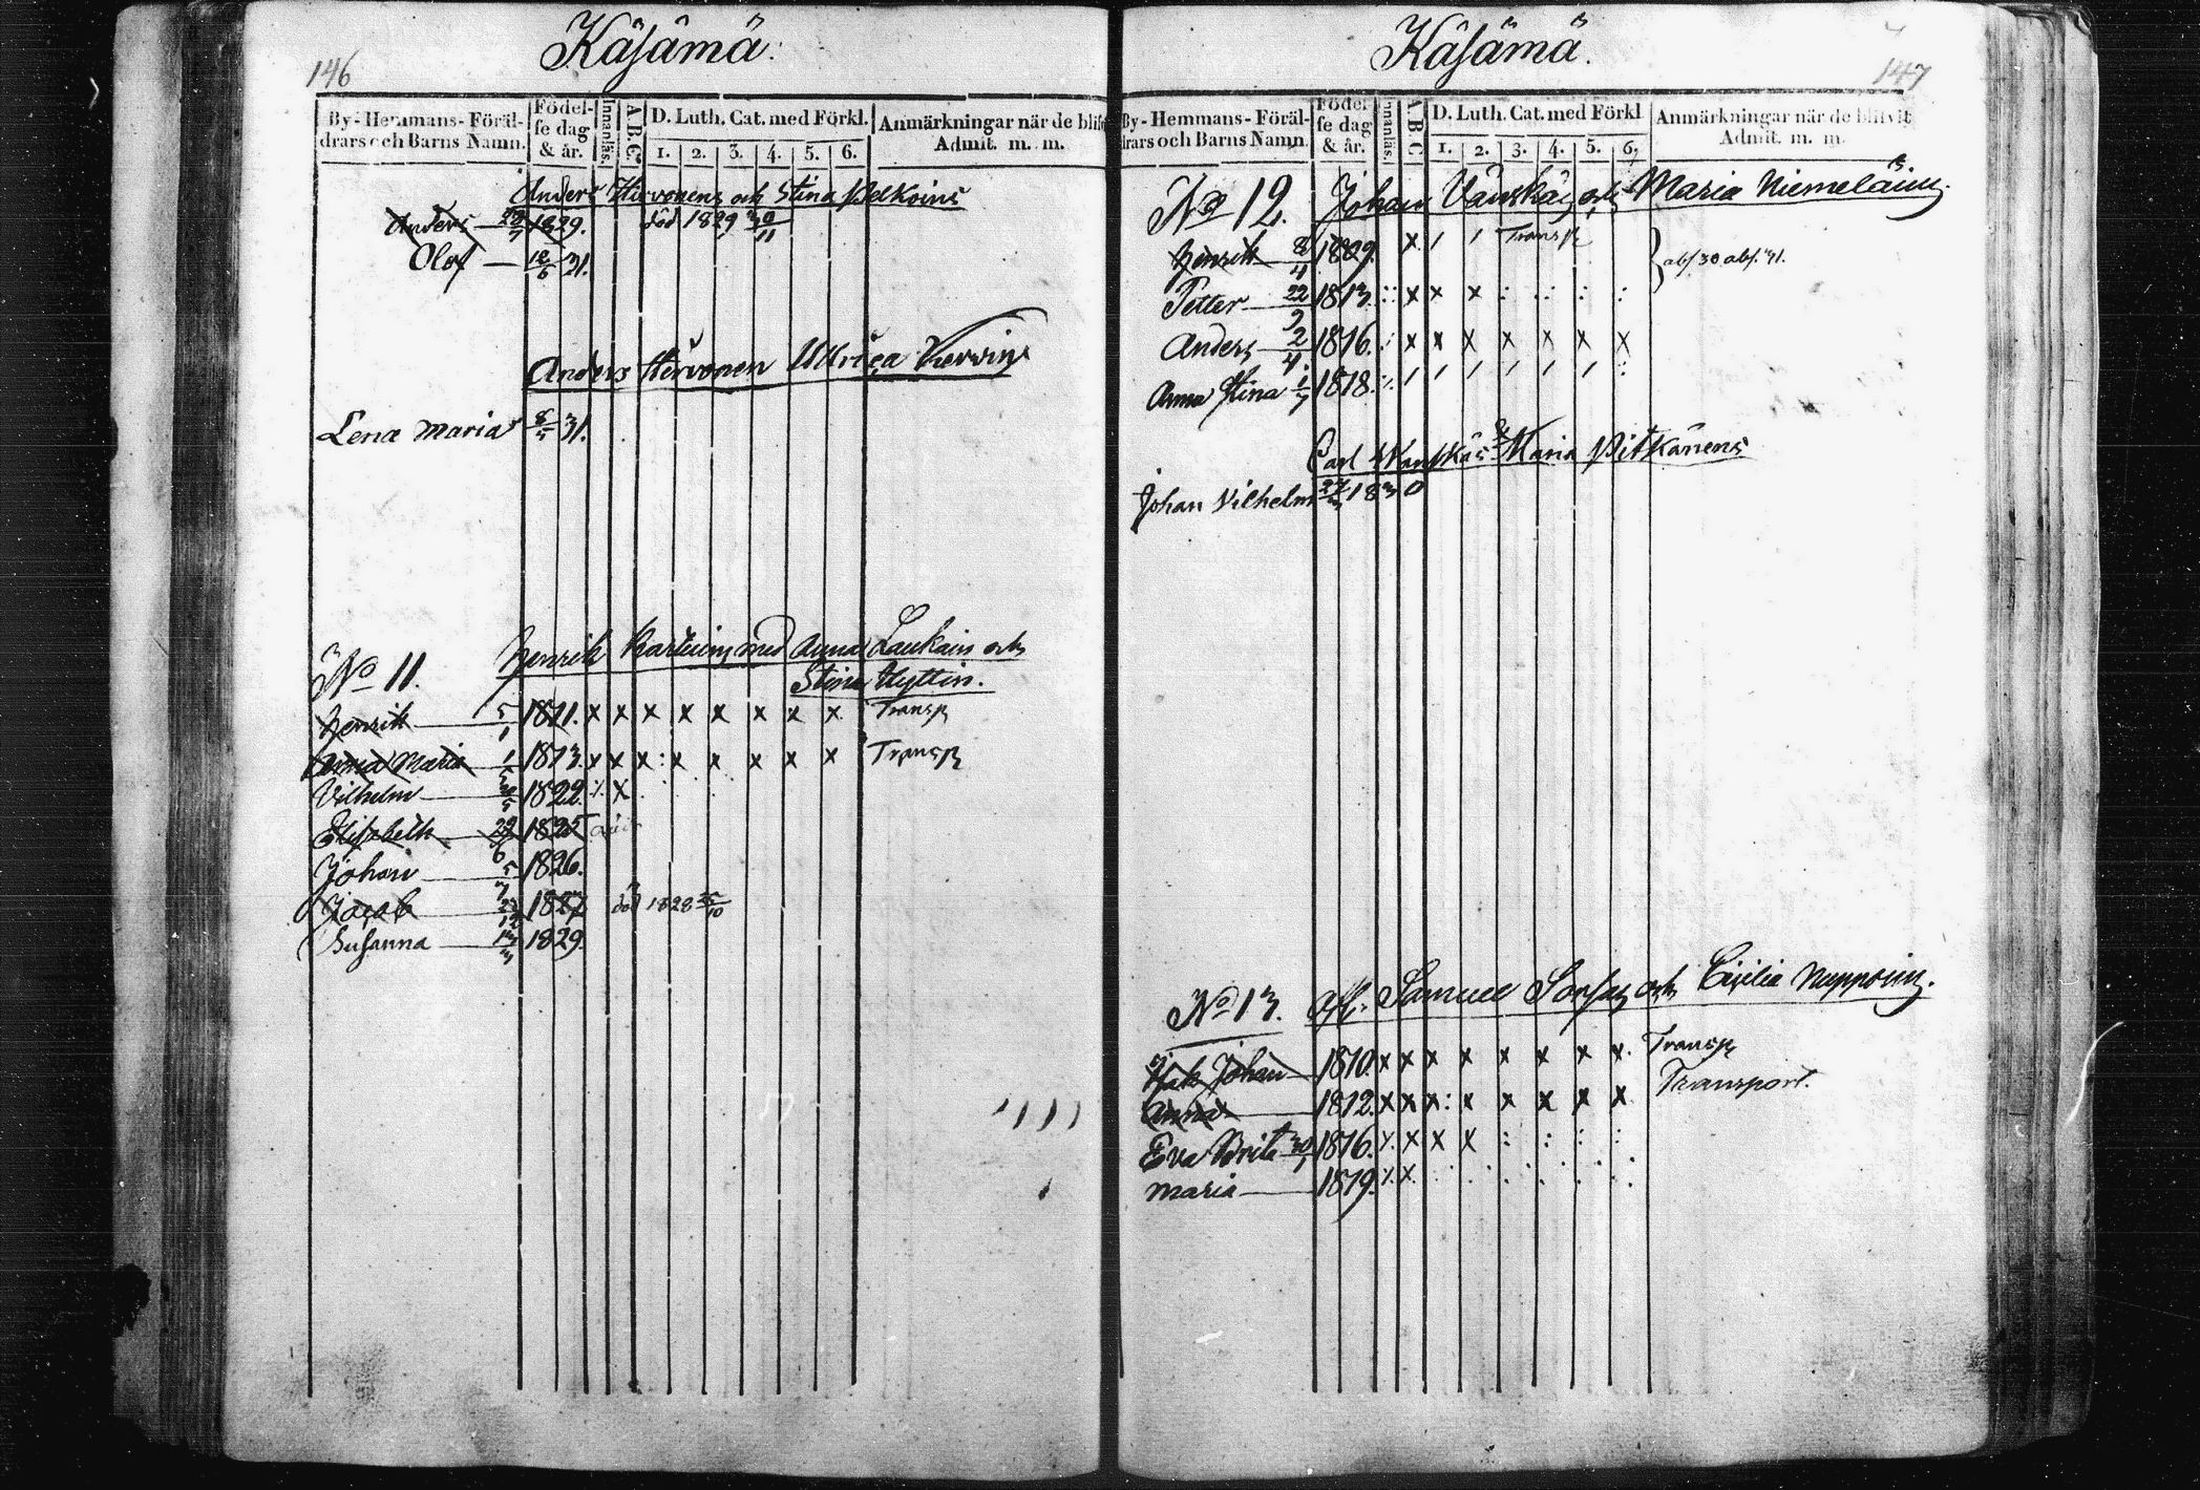 146
Käsämä.
By-Hemmans-Föräl-
drars och Barns Namn.
Födel-
se dag
& år.
Innanläs.
A B C
D. Luth. Cat. med Förkl.
1. 2. 3. 4. 5. 6.
Anmärkningar när de blifvit
Admit. m. m.
Anders Hirvonens och Stina Pelkoins
Anders 29/7 1829. död 1829 30/11
Olof 12/6 31.
Anders Hirvonen Ullrica
Lena Maria 8/5 31.
No 11. Henrik med Anna Laukain och
Stina Hyttin.
Henrik 5/1 1811. x x x x x x x x Transp
Anna Maria 1813. x x x: x x x x x Transp
Vilhelm 1822. ⁒ x
Elisabeth 1825
Johan 5/7 1826.
Jacob 1827 död 1828 25/10
Susanna 13/3 1829.
147
Käsämä.
By-Hemmans-Föräl-
drars och Barns Namn.
Födel-
se dag
& år.
Innanläs.
A B C
D. Luth. Cat. med Förkl.
1. 2. 3. 4. 5. 6.
Anmärkningar när de blifvit
Admit. m. m.
No 12. Johan Vänskäs och Maria Niemeläins.
Henrik 8/4 1809. x / / Transp
abs. 30 abs. 31.
Petter 22/9 1813. : x x x : : : :
Anders 2/4 1816. : x x x x x x x
Anna Stina 1/7 1818. ⁒ / / / / / / :
Carl Wanskäs & Maria Pitkänens
Johan Vilhelm 27/3 1830
No 13. Afl: Samuel Sorsas och Cicilia Nuppoins.
Jak Johan 1810. x x x x x x x x. Transp
Anna 1812. x x x: x x x x x Transport.
Eva Brita 30/1 1816. ⁒ x x x : : : :
Maria 1819. ⁒ x